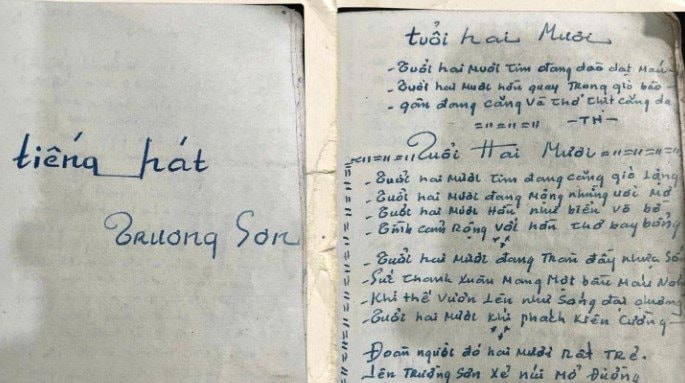 tiếng hát
Trương Sơn
tuổi hai Mươi
- Tuổi hai Mươi tim đang dào dạt Máu
- Tuổi hai Mươi hồn quay Trong gió bão
- gân đang căng và thớ thịt căng da
=n=n=n -TH-
=n=n= Tuổi Hai Mươi =n=n=n=n
- Tuổi hai Mươi tim đang căng gió Lộng
- Tuổi hai Mươi đang Mộng những ước Mơ
- Tuổi hai Mươi Hồn như biển vô bờ
- Tình cảm Rộng với hồn thơ bay bổng
- Tuổi hai Mươi đang Tràn đầy nhựa Số
- Sức thanh Xuân Mang Một bầu Máu Nó
- Khí thế Vươn Lên như Sóng đại dương
- Tuổi hai Mươi khí phách Kiên Cường
Đoàn người đó hai Mươi Rất Trẻ.
Lên Trường Sơn Xẻ núi Mở Đường